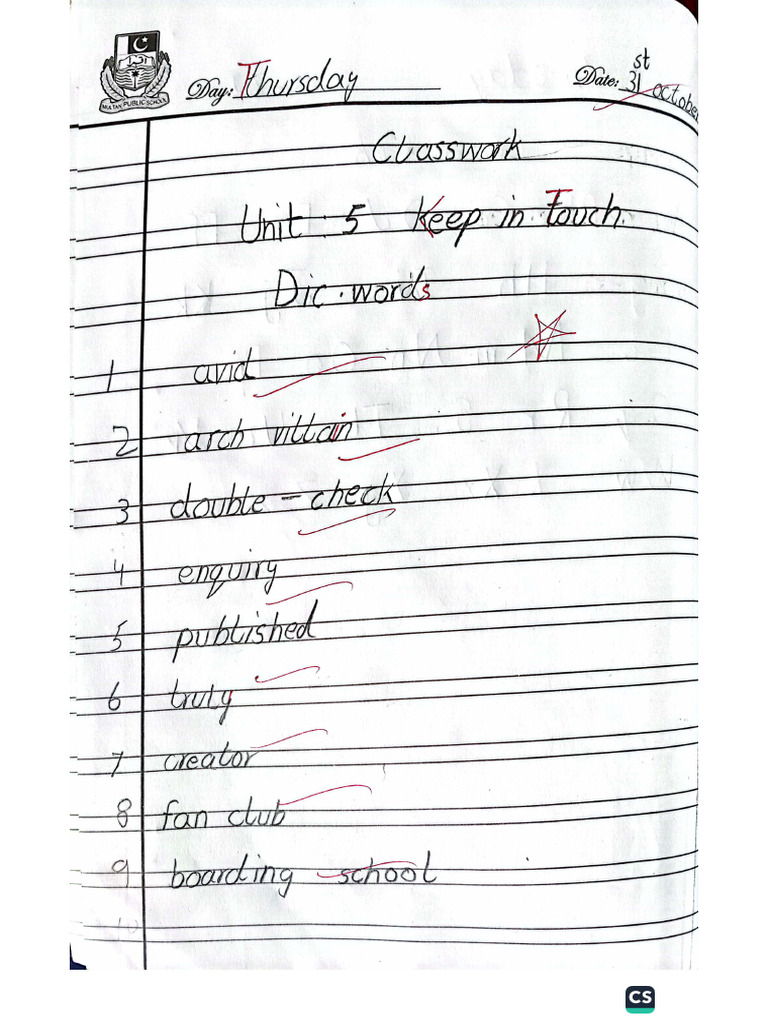 MULTAN PUBLIC SCHOOL
Day: Thursday Date: 31st October
Classwork
Unit : 5 Keep in Touch.
Dic. words
1 avid
2 arch villain
3 double - check
4 enquiry
5 published
6 truly
7 creator
8 fan club
9 boarding school
10
CS